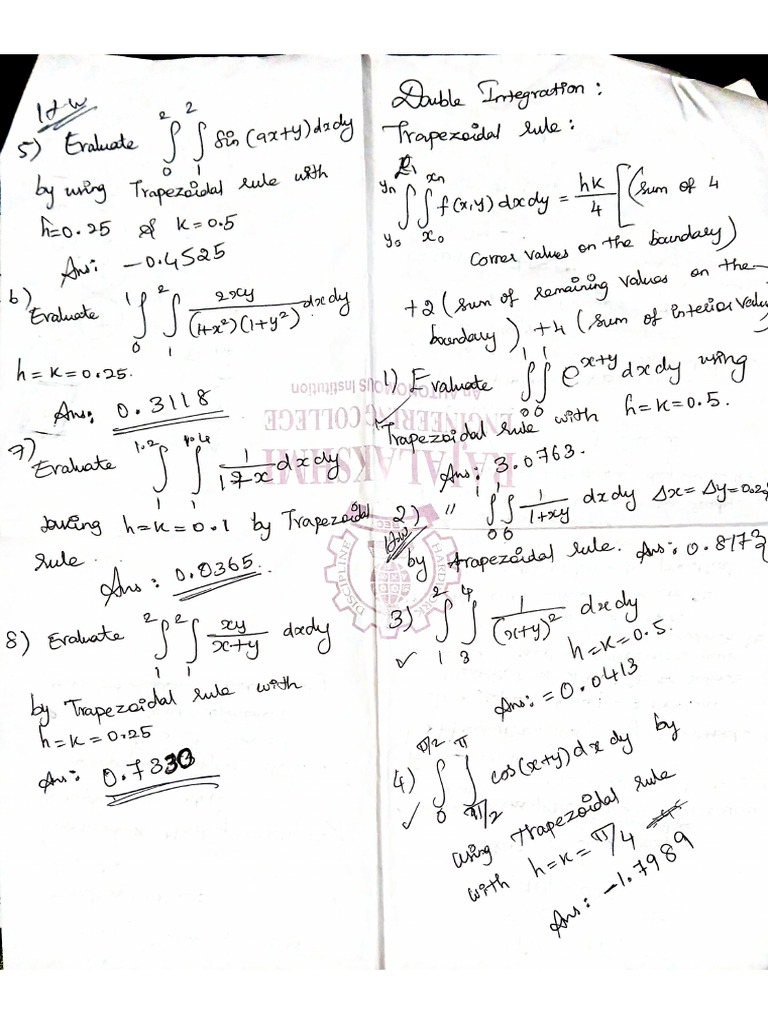 H.W
5) Evaluate ∫₀² ∫₁² sin(4x+y) dxdy
by using Trapezoidal rule with
h=0.25 & k=0.5
Ans: -0.4525
6)
Evaluate ∫₀¹ ∫₁² 2xy/((1+x²)(1+y²)) dxdy
h = k = 0.25.
Ans: 0.3118
7)
Evaluate ∫₁^1.2 ∫₁^1.4 1/x dxdy
h=k=0.1 by Trapezoidal
rule.
Ans: 0.0365.
8) Evaluate ∫₁² ∫₁² xy/(x+y) dxdy
by Trapezoidal rule with
h=k=0.25
Ans: 0.7330
Double Integration:
Trapezoidal rule:
∫_{y₀}^{yₙ} ∫_{x₀}^{xₙ} f(x,y) dxdy = hk/4 [(sum of 4
Corner values on the boundary)
+2 (sum of remaining values on the
boundary) +4 (sum of interior values
1) Evaluate ∫₀¹ ∫₀¹ e^{x+y} dxdy using
Trapezoidal rule with h=k=0.5.
Ans: 3.0763.
2) " ∫₀¹ ∫₀¹ 1/(1+xy) dxdy Δx = Δy=0.2
H.W
by trapezoidal rule. Ans: 0.8173
3) ∫₁² ∫₃⁴ 1/(x+y)² dxdy
h=k=0.5.
Ans: = 0.0413
4) ∫₀^{π/2} ∫_{π/2}^{π} cos(x+y) dxdy by
using trapezoidal rule
with h=k=π/4
Ans: -1.7989
AN AUTONOMOUS Institution
ENGINEERING COLLEGE
RAJALAKSHMI
DISCIPLINE
REC